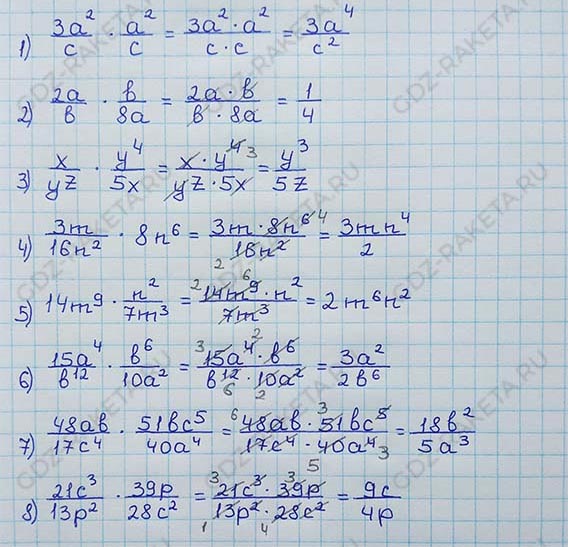 1) 3a²/c · a²/c = 3a²·a²/c·c = 3a⁴/c²
2) 2a/b · b/8a = 2a·b/b·8a = 1/4
3) x/yz · y⁴/5x = x·y⁴ ³/yz·5x = y³/5z
4) 3m/16n² · 8n⁶ = 3m·8n⁶ ⁴/16n² 2 = 3mn⁴/2
5) 14m⁹ · n²/7m³ = ² 14m⁹ ⁶·n²/7m³ = 2m⁶n²
6) 15a⁴/b¹² · b⁶/10a² = ³ 15a⁴ ²·b⁶/b¹² 6·10a² 2 = 3a²/2b⁶
7) 48ab/17c⁴ · 51bc⁵/40a⁴ = ⁶ 48ab·³ 51bc⁵/17c⁴·40a⁴ 3 5 = 18b²/5a³
8) 21c³/13p² · 39p/28c² = ³ 21c³·³ 39p/13p² 1·28c² 4 = 9c/4p
GDZ-RAKETA.RU